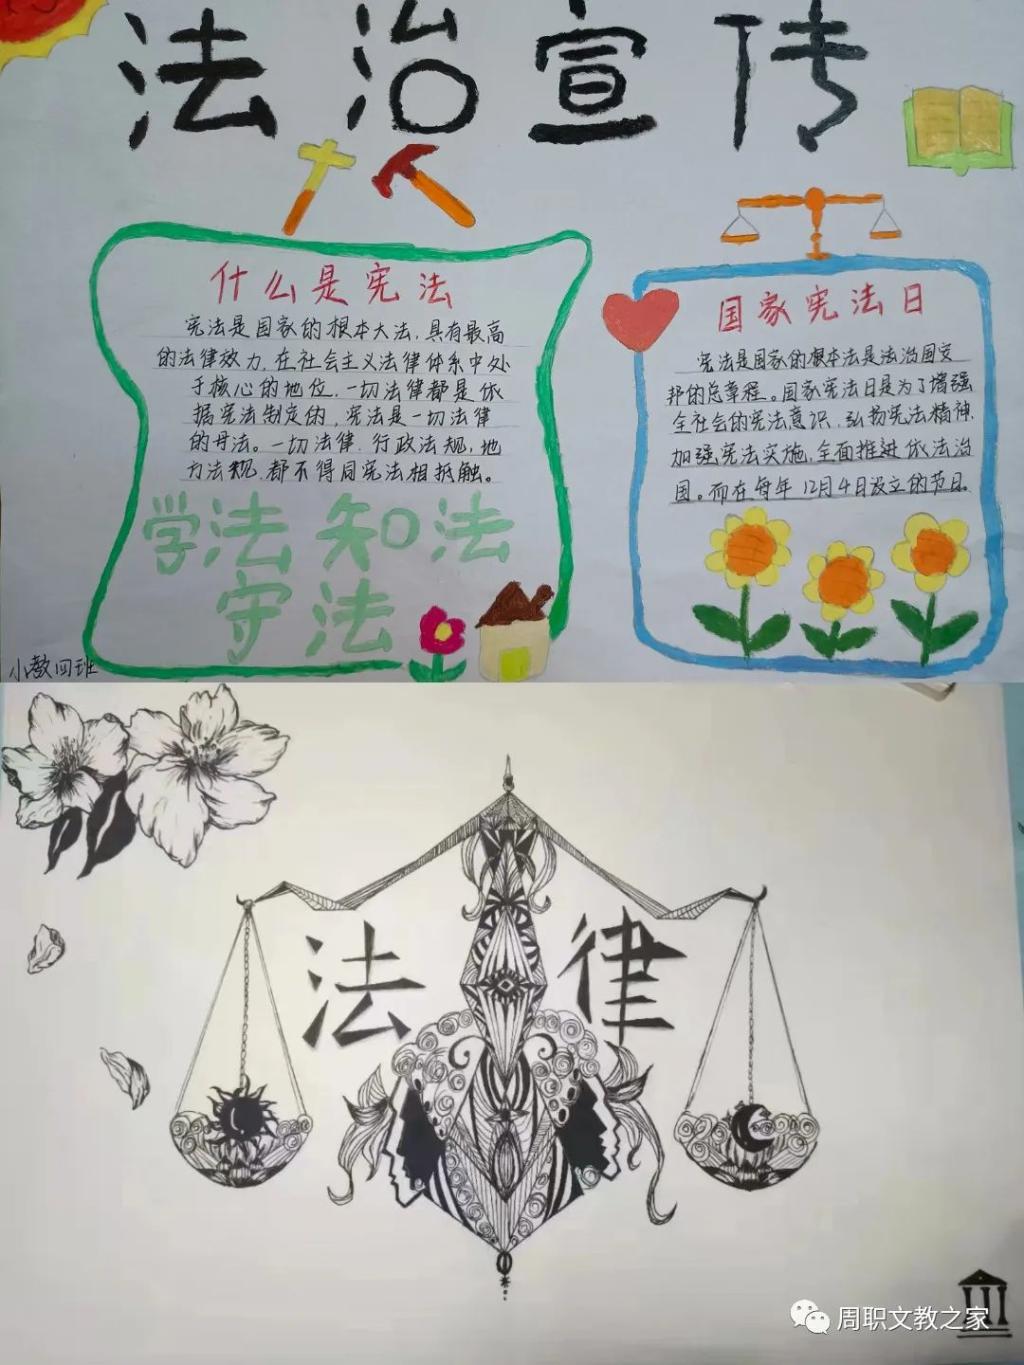 法治宣传
什么是宪法
宪法是国家的根本大法，具有最高
的法律效力，在社会主义法律体系中处
于核心的地位，一切法律都是依
据宪法制定的，宪法是一切法律
的母法。一切法律、行政法规，地
方法规，都不得同宪法相抵触。
学法 知法
守法
小教四班
国家宪法日
宪法是国家的根本法是法治国安
邦的总章程。国家宪法日是为了增强
全社会的宪法意识，弘扬宪法精神，
加强宪法实施，全面推进依法治
国。而在每年12月4日设立的节日。
法律
周职文教之家